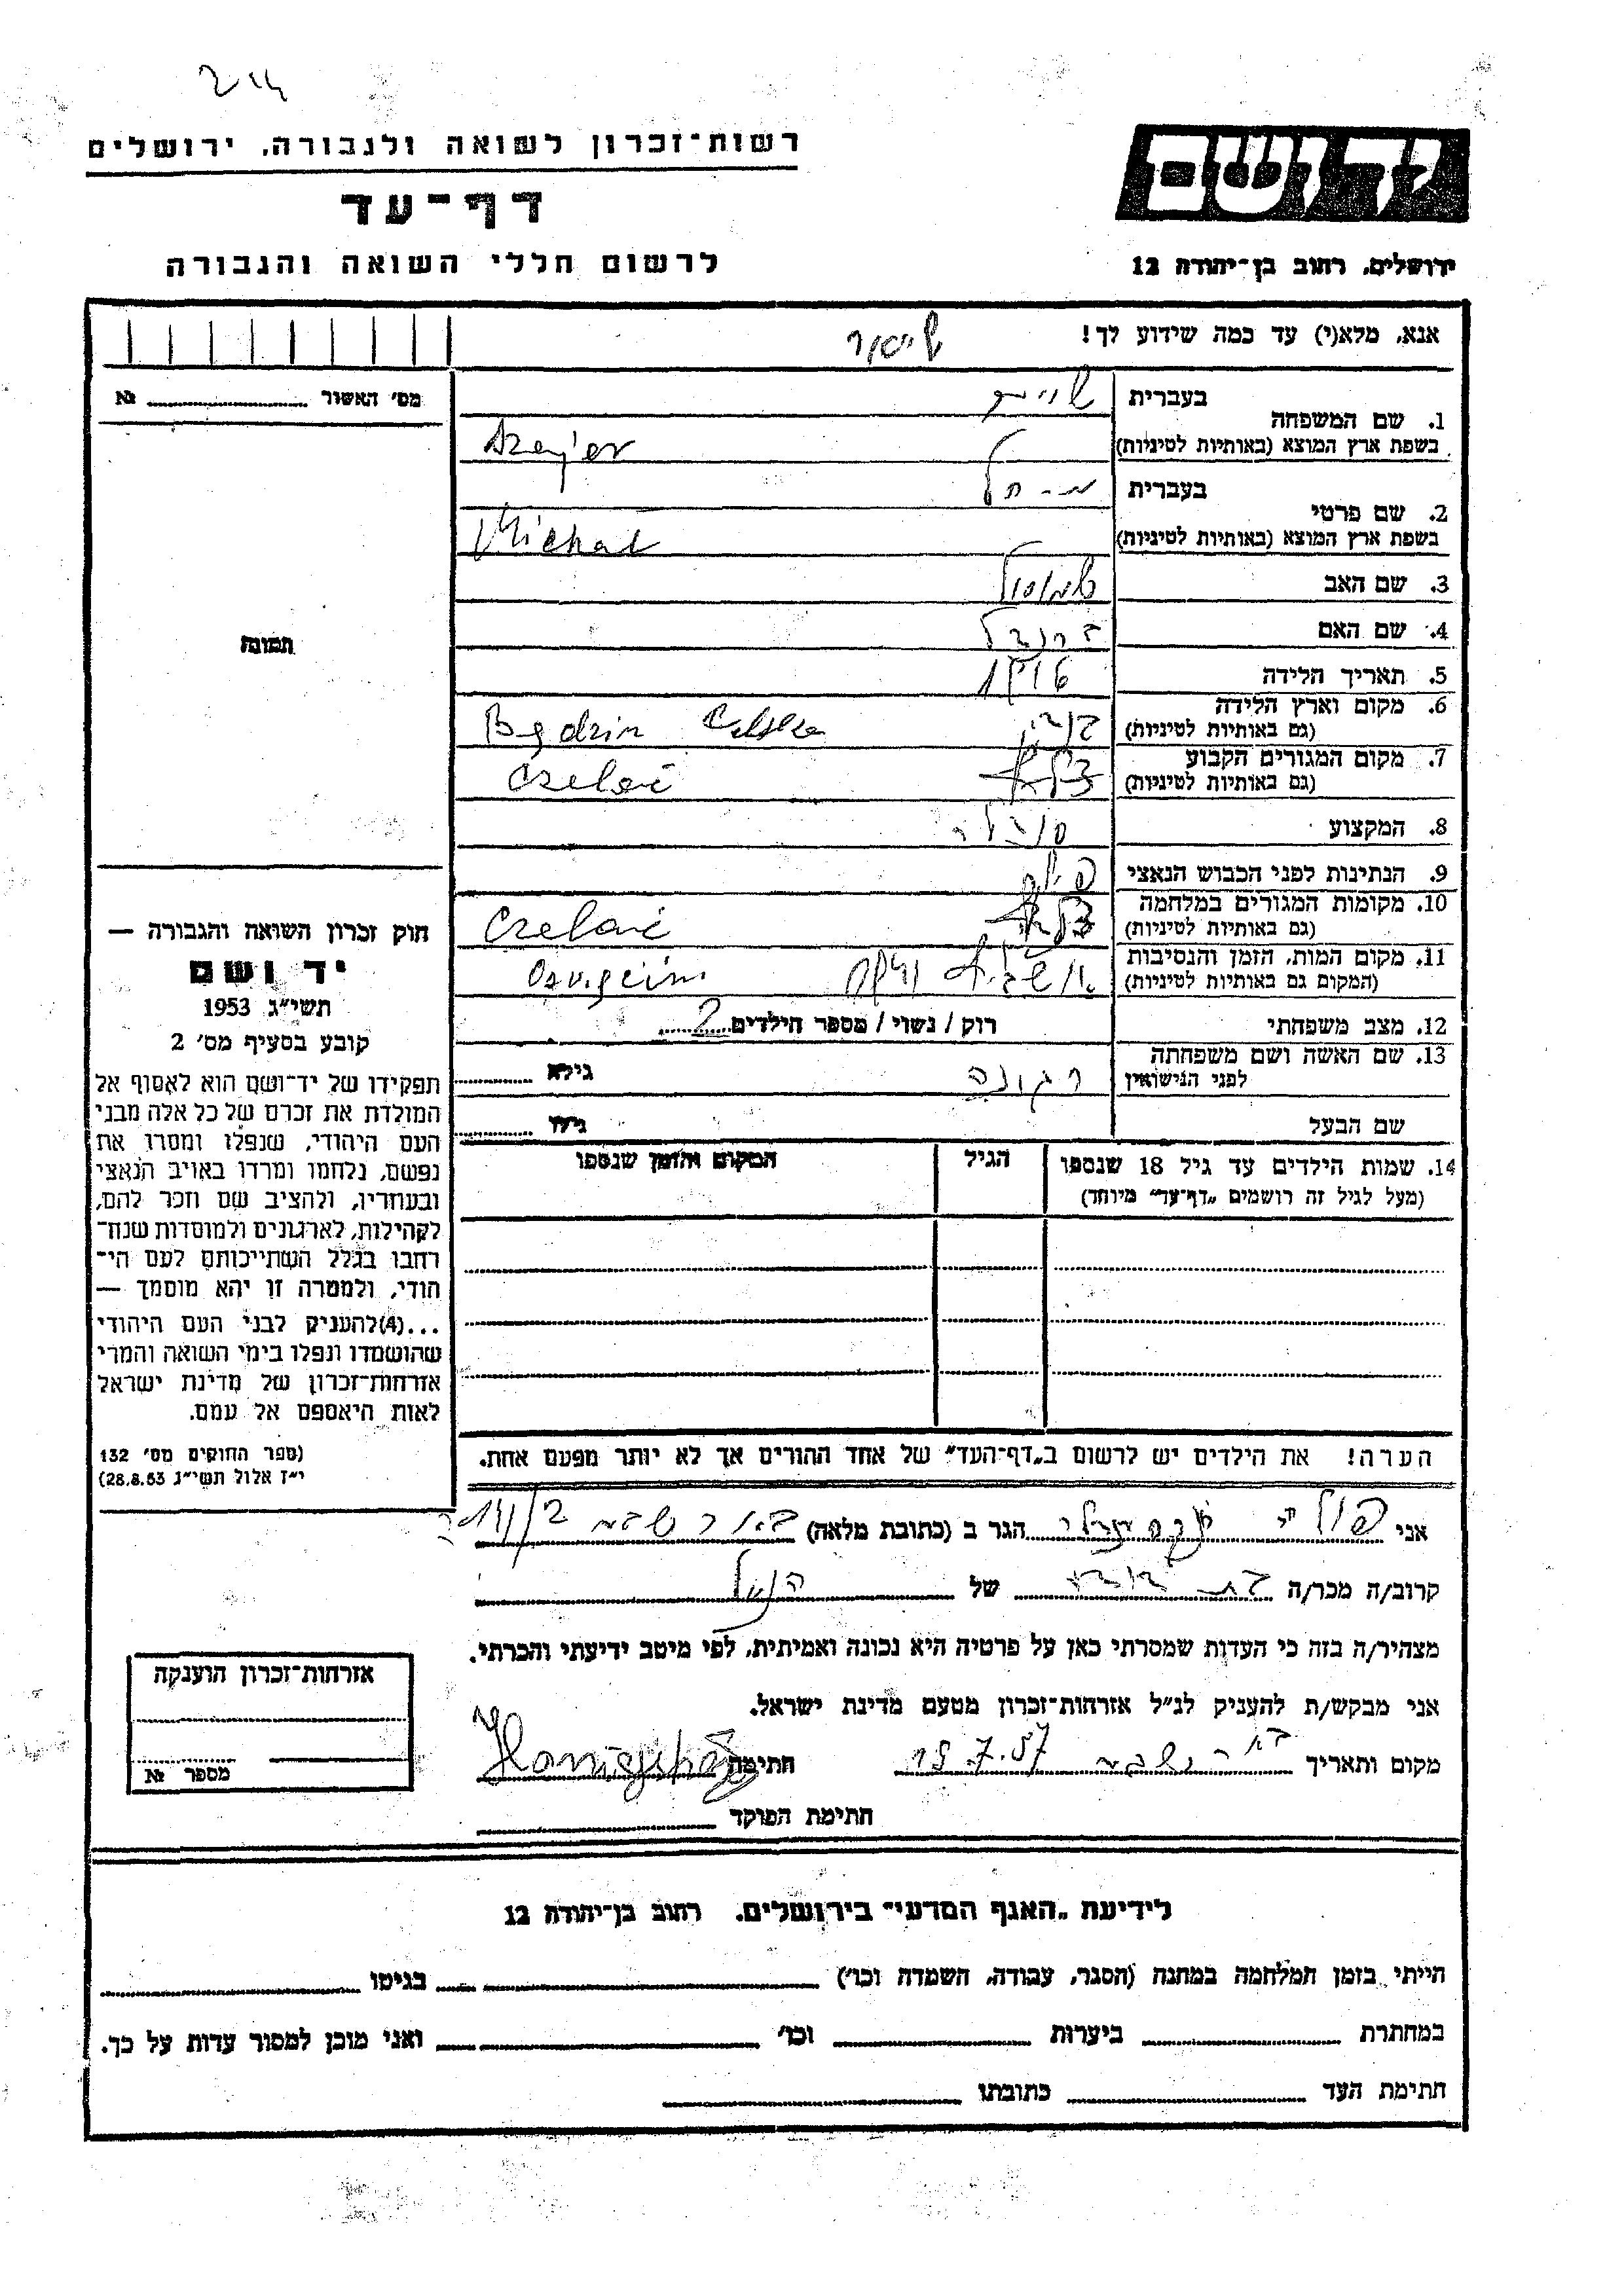 רשות־זכרון לשואה ולגבורה, ירושלים
דף־עד
לרשום חללי השואה והגבורה
יד ושם
ירושלים, רחוב בן־יהודה 12
אנא, מלא(י) עד כמה שידוע לך!
מס' האשור № 
1. שם המשפחה
בעברית
בשפת ארץ המוצא (באותיות לטיניות)
2. שם פרטי
בעברית
בשפת ארץ המוצא (באותיות לטיניות) Michał
3. שם האב שמואל
4. שם האם
5. תאריך הלידה
6. מקום וארץ הלידה
(גם באותיות לטיניות) Będzin
7. מקום המגורים הקבוע
(גם באותיות לטיניות) Czeladź
8. המקצוע
9. הנתינות לפני הכבוש הנאצי
10. מקומות המגורים במלחמה
(גם באותיות לטיניות) Czeladź
11. מקום המות, הזמן והנסיבות
(המקום גם באותיות לטיניות)
12. מצב משפחתי רוק / נשוי / מספר הילדים 2
13. שם האשה ושם משפחתה
לפני הנישואין גילא
שם הבעל גילו
14. שמות הילדים עד גיל 18 שנספו הגיל המקום והזמן שנספו
(מעל לגיל זה רושמים "דף־עד" מיוחד)
הערה! את הילדים יש לרשום ב"דף־העד" של אחד ההורים אך לא יותר מפעם אחת.
תמונה
חוק זכרון השואה והגבורה —
יד ושם
תשי"ג 1953
קובע בסעיף מס' 2
תפקידו של יד־ושם הוא לאסוף אל
המולדת את זכרם של כל אלה מבני
העם היהודי, שנפלו ומסרו את
נפשם, נלחמו ומרדו באויב הנאצי
ובעוזריו, ולהציב שם וזכר להם,
לקהילות, לארגונים ולמוסדות שנח־
רחבו בגלל השתייכותם לעם הי־
הודי, ולמטרה זו יהא מוסמך —
...(4)להעניק לבני העם היהודי
שהושמדו ונפלו בימי השואה והמרי
אזרחות־זכרון של מדינת ישראל
לאות היאספם אל עמם.
(ספר החוקים מס' 132
י"ז אלול תשי"ג 28.8.53)
אני הגר ב (כתובת מלאה) באר שבע
קרוב/ה מכר/ה של הנ"ל
מצהיר/ה בזה כי העדות שמסרתי כאן על פרטיה היא נכונה ואמיתית, לפי מיטב ידיעתי והכרתי.
אני מבקש/ת להעניק לנ"ל אזרחות־זכרון מטעם מדינת ישראל.
מקום ותאריך באר שבע חתימה
חתימת הפוקד
אזרחות־זכרון הוענקה
מספר №
לידיעת "האגף המדעי" בירושלים. רחוב בן־יהודה 12
הייתי בזמן המלחמה במחנה (הסגר, עבודה, השמדה וכו') בגיטו
במחתרת ביערות וכו' ואני מוכן למסור עדות על כך.
חתימת העד כתובתו